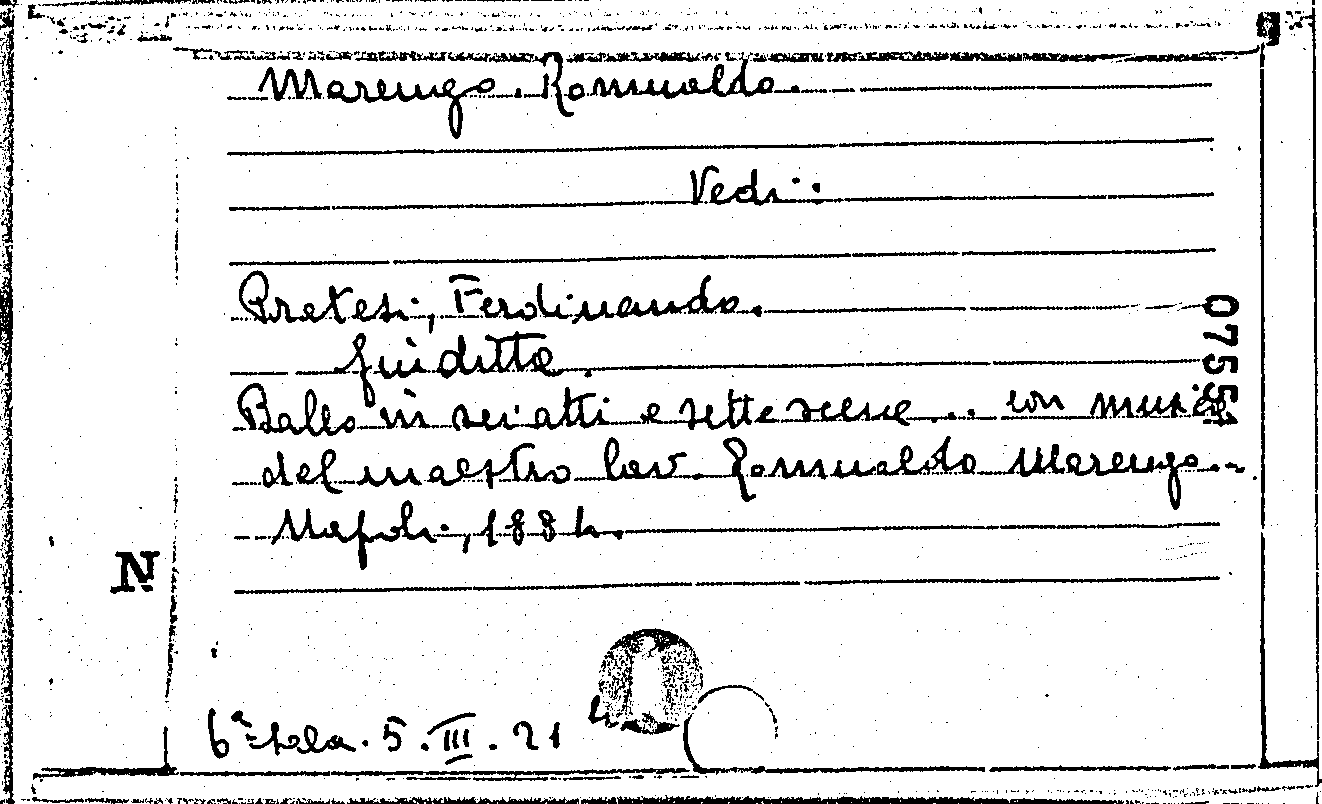 Marengo. Romualdo.
Vedi:
Pratesi, Ferdinando.
Giuditta.
Ballo in sei atti e sette scene... con musica
del maestro Cav. Romualdo Marengo...
Napoli, 1884.
07551
N
6ª sala. 5. III. 21